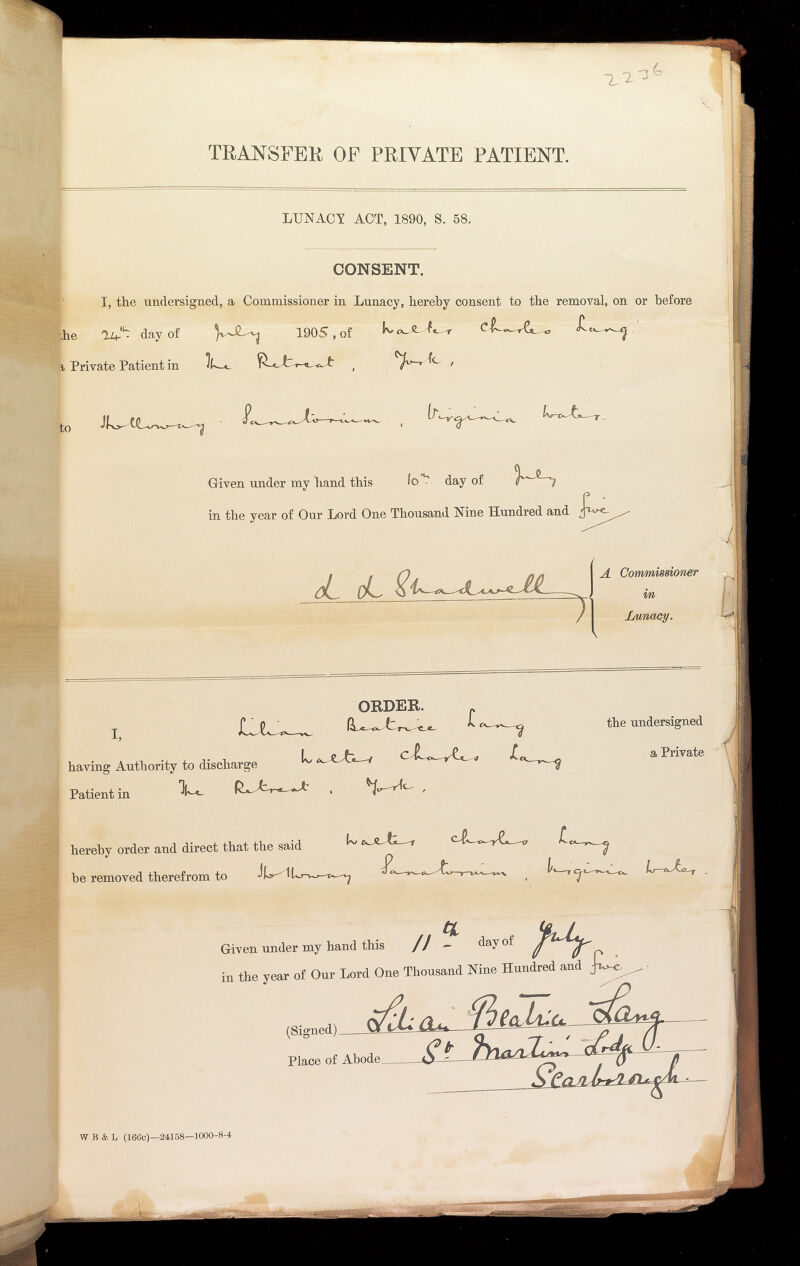 2236
TRANSFER OF PRIVATE PATIENT.
LUNACY ACT, 1890, S. 58.
CONSENT.
I, the undersigned, a Commissioner in Lunacy, hereby consent to the removal, on or before
the 24th day of July 1905, of Walter Charles Lang
a Private Patient in The Retreat, York,
to Holloway Sanatorium, Virginia Water.
Given under my hand this 10th day of July
in the year of Our Lord One Thousand Nine Hundred and five
L L Shadwell
A Commissioner
in
Lunacy.
ORDER.
I, Lilian Beatrice Lang the undersigned
having Authority to discharge Walter Charles Lang a Private
Patient in The Retreat, York,
hereby order and direct that the said Walter Charles Lang
be removed therefrom to Holloway Sanatorium, Virginia Water.
Given under my hand this 11th day of July
in the year of Our Lord One Thousand Nine Hundred and five.
(Signed) Lilian Beatrice Lang
Place of Abode St Martin's Lodge.
Scarborough.
W B & L (166c)—24158—1000-8-4